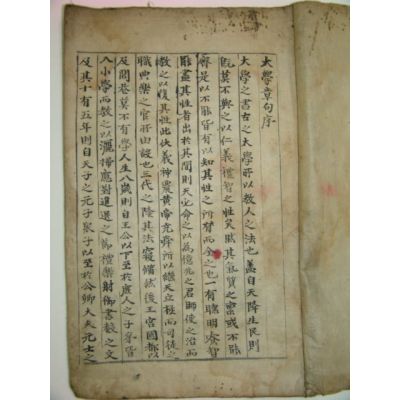 大學章句序
大學之書古之大學所以教人之法也蓋自天降生民則
既莫不與之以仁義禮智之性矣然其氣質之稟或不能
齊是以不能皆有以知其性之所有而全之也一有聰明睿智
能盡其性者出於其間則天必命之以為億兆之君師使之治而
教之以復其性此伏羲神農黃帝堯舜所以継天立極而司徒之
職典樂之官所由設也三代之隆其法寖備然後王宮國都以
及閭巷莫不有學人生八歲則自王公以下至於庶人之子弟皆
入小學而教之以灑掃應對進退之節禮樂射御書數之文
及其十有五年則自天子之元子衆子以至於公卿大夫元士之